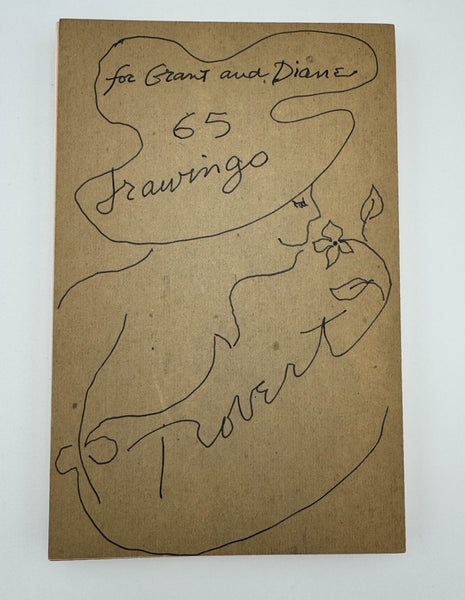 for Grant and Diane
65
Drawings
Trovert